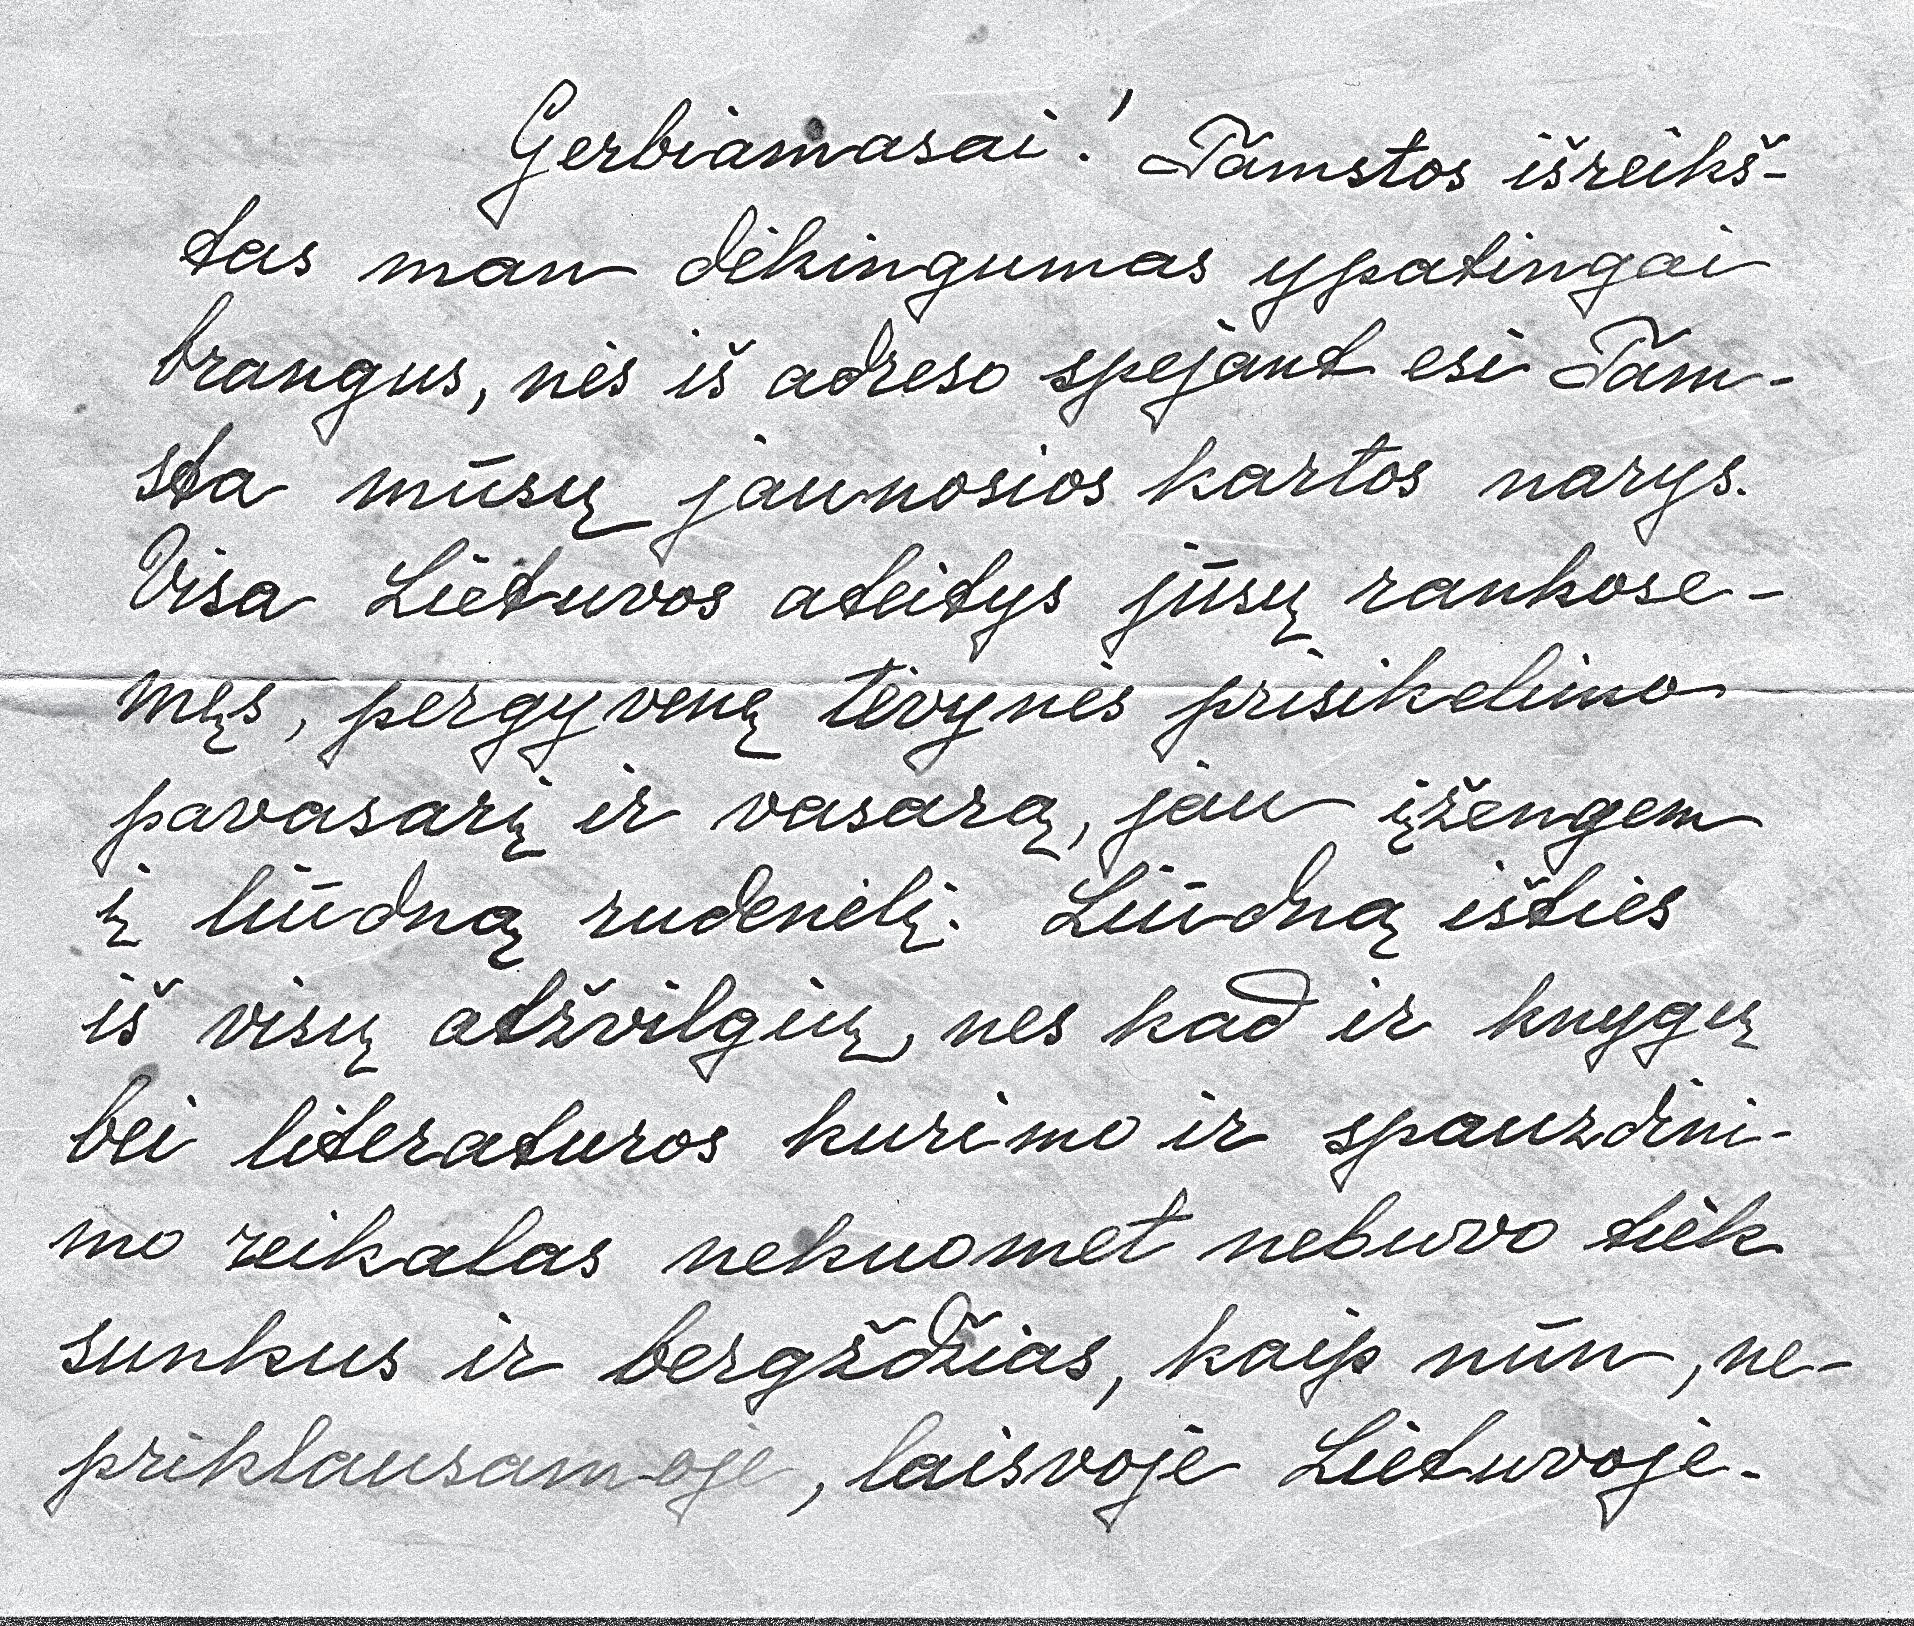 Gerbiamasai! Tamstos išreikš-
tas man dėkingumas ypatingai
brangus, nes iš adreso spėjant esi Tam-
sta mūsų jaunosios kartos narys.
Visa Lietuvos ateitys jūsų rankose-
męs, pergyvenę tėvynės prisikėlimo
pavasarį ir vasarą, jau įžengem
į liūdną rudenėlį. Liūdną išties
iš visų atžvilgių, nes kad ir knygų
bei literaturos kurimo ir spauzdini-
mo reikalas nekuomet nebuvo tiek
sunkus ir bergždžias, kaip nūn, ne-
priklausamoje, laisvoje Lietuvoje.